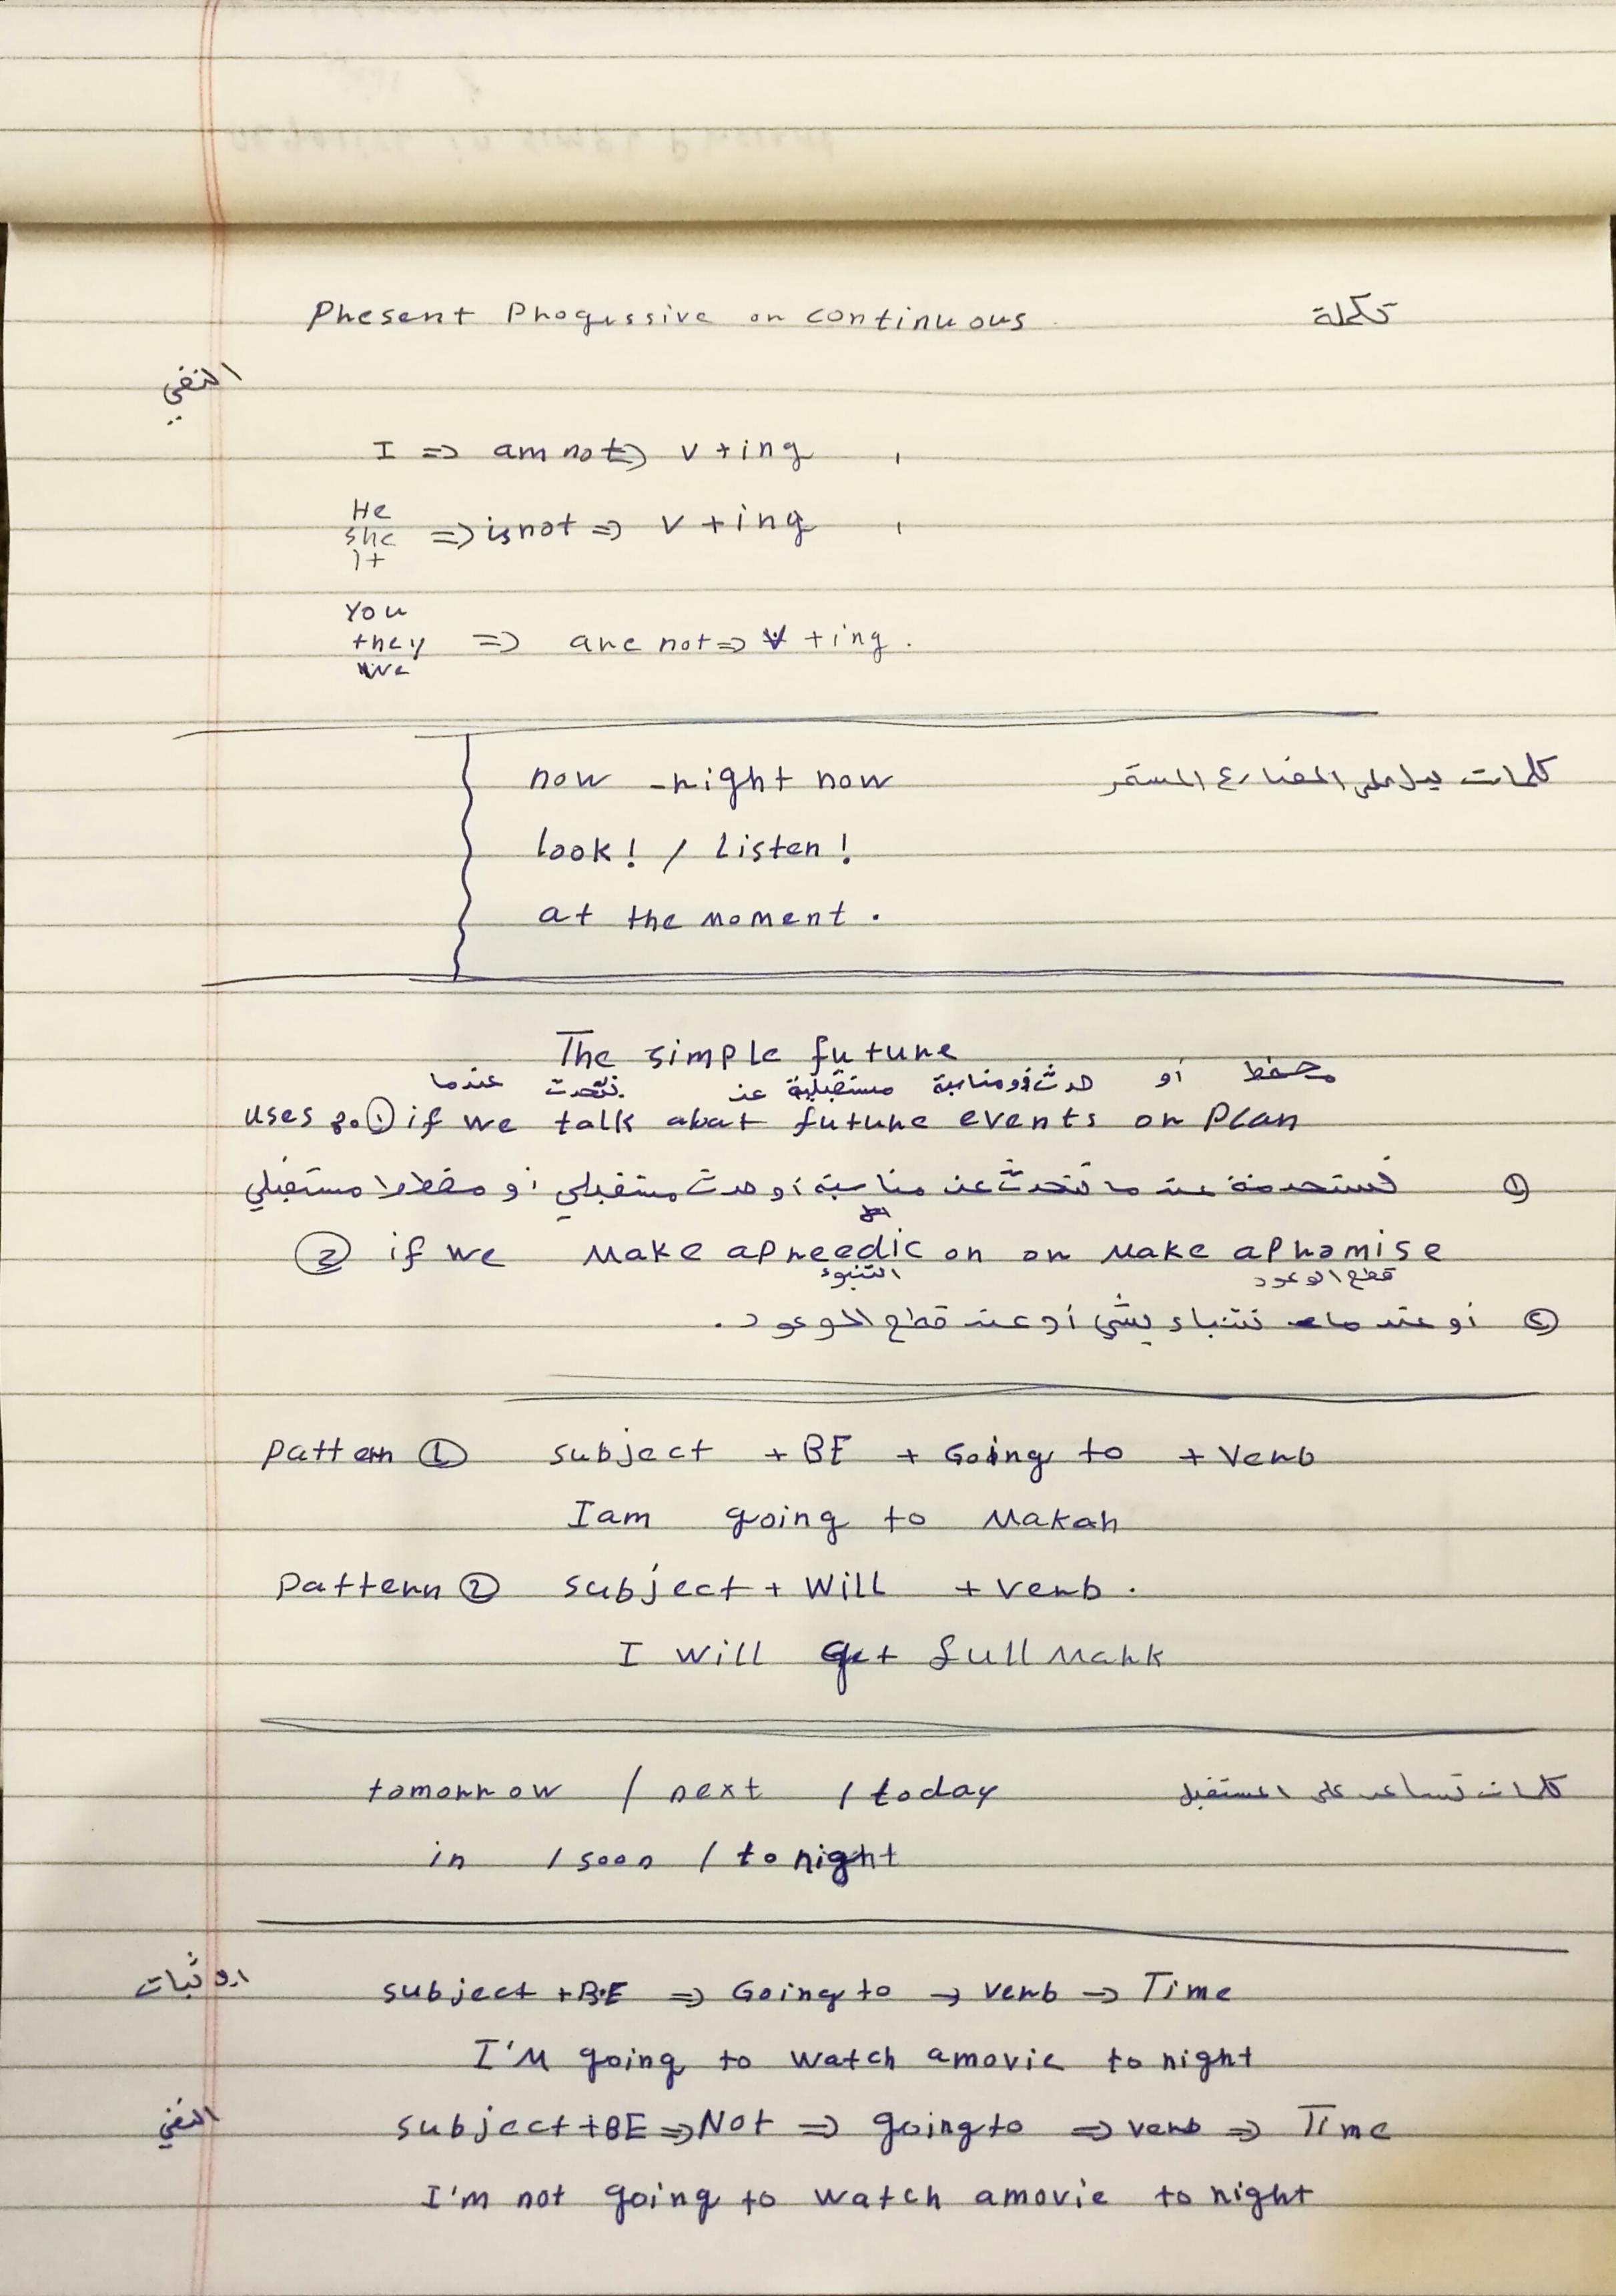 Present Progissive or continuous تكملة
النفي
I => am not => v + ing ,
He
she => is not => v + ing ,
It
You
they => are not => v + ing .
we
now - right now كلمات يدل على المضارع المستمر
look! / Listen!
at the moment .
The simple future
عندما نتحدث عن مستقبلية حدث أو مناسبة أو مخطط
uses ① if we talk abat future events or Plan
① نستخدمة عندما نتحدث عن مناسبة أو حدث مستقبلي أو مخططا مستقبلي
② if we Make apreedic on or Make apromise
التنبوء قطع الوعود
② أو عندما نتنباء بشي أو عند قطع الوعود .
Pattern ① subject + BE + Going to + Verb
I am going to Makah
Pattern ② subject + Will + verb .
I will get full Mark
tomorrow / next / today كلمات تساعد على المستقبل
in / soon / to night
الاثبات subject + BE => Going to -> verb -> Time
I'M going to watch amovie to night
النفي subject + BE => Not => going to => verb => Time
I'm not going to watch amovie to night